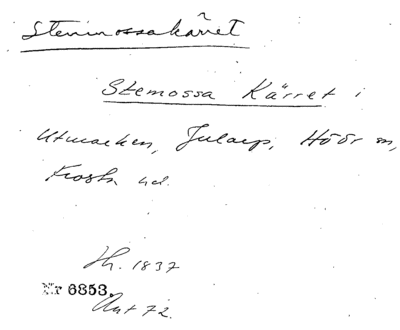 Stenmossakärret
Stemossa Kärret i
Utmarken, Jularp, Höör sn,
Frosta hd.
Jh. 1837
Nr 6853.
Ant 72.